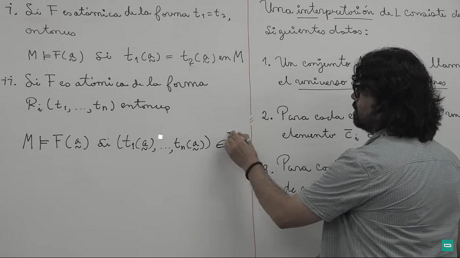 i. Si F es atómica de la forma t₁=t₂,
entonces
M ⊨ F(a̰) si t₁(a̰) = t₂(a̰) en M
ii. Si F es atómica de la forma
Rᵢ(t₁,...,tₙ) entonces
M ⊨ F(a̰) si (t₁(a̰),...,tₙ(a̰)) ∈
Una interpretación de L consiste de
siguientes datos:
1. Un conjunto
el universo
2. Para cada
elemento c̄ᵢ
Para